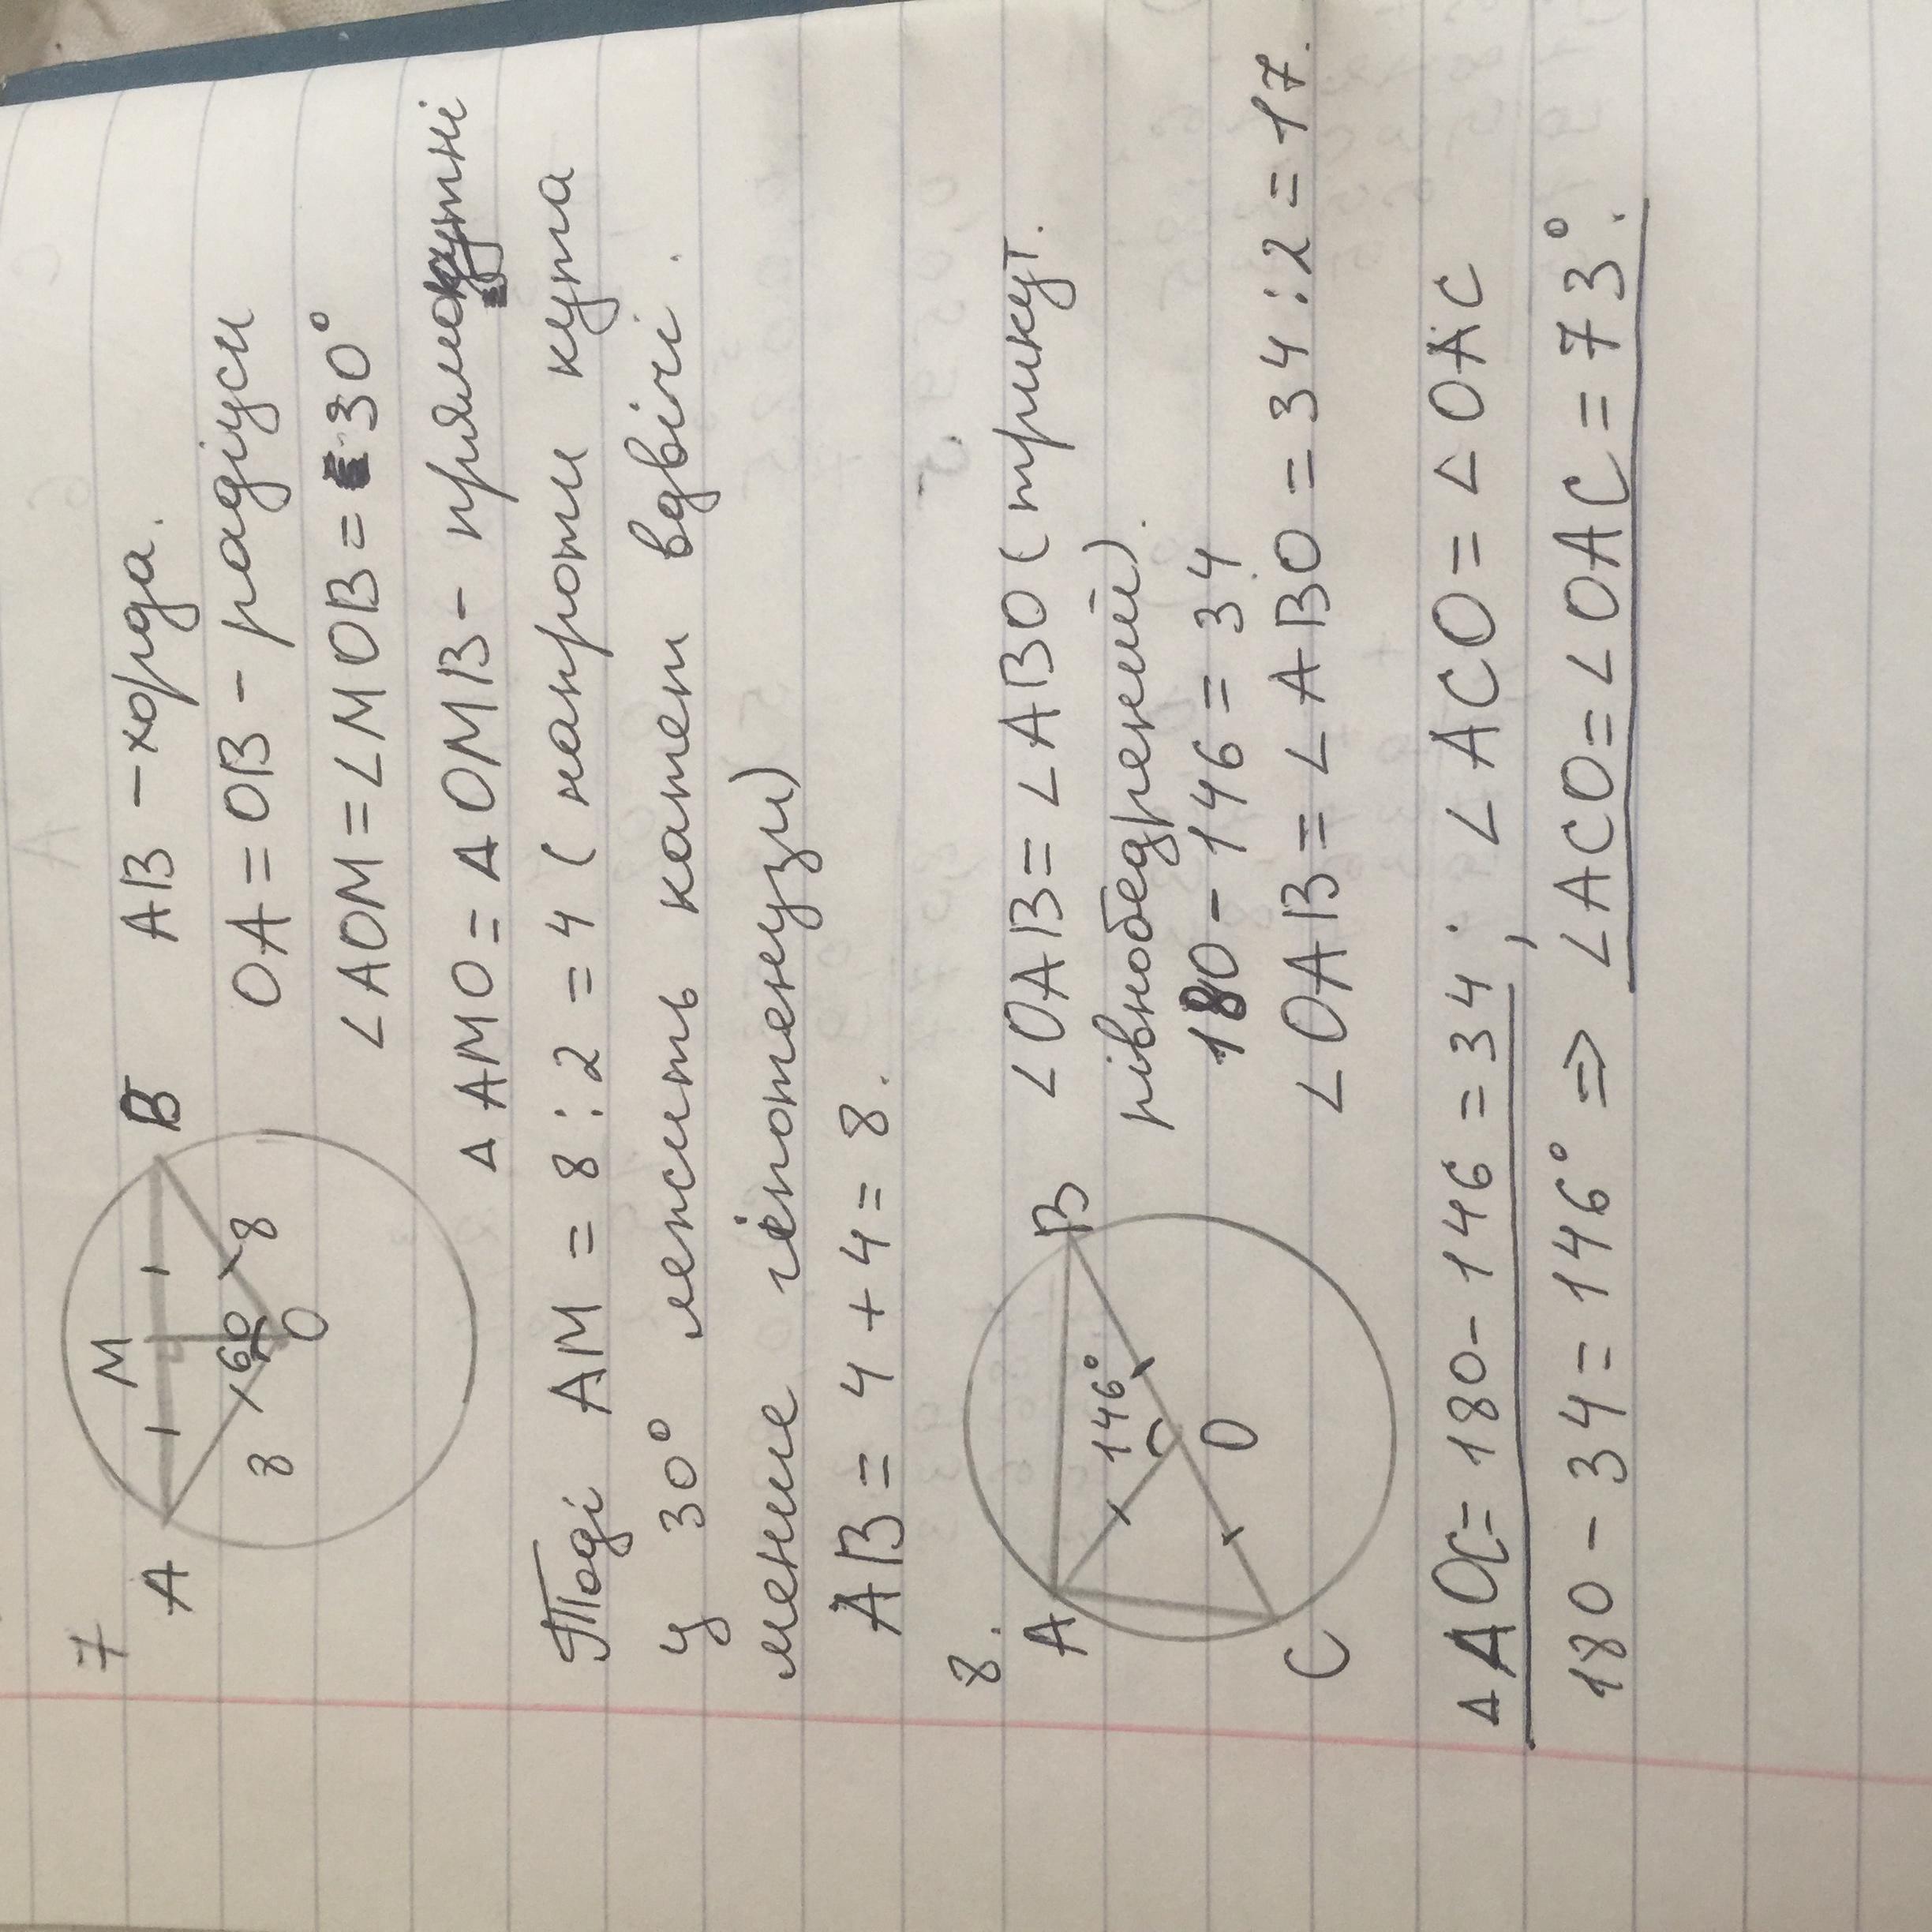 7
A M B
8 60 8
O
AB – хорда.
OA = OB – радіуси
∠AOM = ∠MOB = 30°
△AMO = △OMB – прямокутні
Тоді AM = 8 : 2 = 4 ( напроти кута
у 30° лежить катет вдвічі
менше гіпотенузи)
AB = 4 + 4 = 8 .
8.
A B
146°
O
C
∠OAB = ∠ABO ( трикут.
рівнобедрений).
180 - 146 = 34
∠OAB = ∠ABO = 34 : 2 = 17.
△AOC = 180 - 146 = 34 ; ∠ACO = ∠OAC
180 - 34 = 146° => ∠ACO = ∠OAC = 73°.